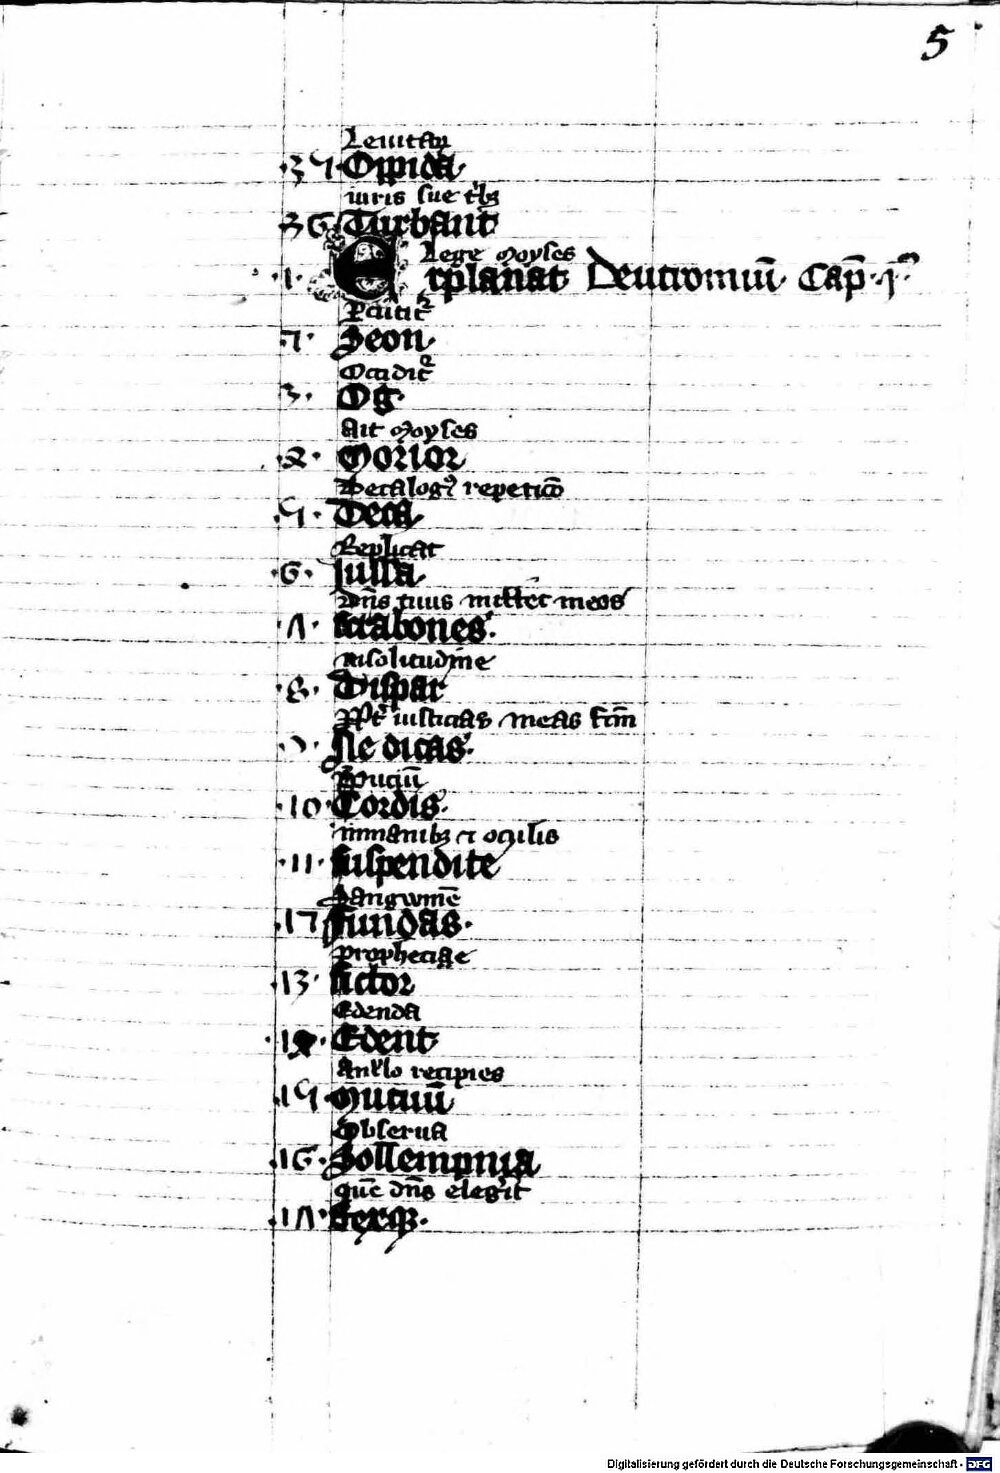 5
Leuitaꝝ
·35· Oppida·
iuris sue tͥbꝫ
36 Turbant
Lege moyses
·1· Explanat Deutromiū· Cap̄·1ᵐ·
Percutitᷣ
·2· Seon·
Occiditᷣ
·3· Og·
Ait moyses
·4· Morior
Decalogꝰ repeticō
·5· Deca
Replicat
·6· Iussa·
dn̄s tuus mittet
·7· Scrabones·
insolitudine
·8· Dispar
iusticias meas
·9· Ne dicas·
·10· Cordis·
inmanibꝫ ⁊ oculis
·11· Suspendite
Sangwinē
·12 Fundas·
prophecie
·13· Fictor
Edenda
·14· Edent·
recipies
·15· Mutuū
Obserua
·16· Sollempnia
quē dn̄s elegͥt
·17· Rexqꝫ·
Digitalisierung gefördert durch die Deutsche Forschungsgemeinschaft - DFG